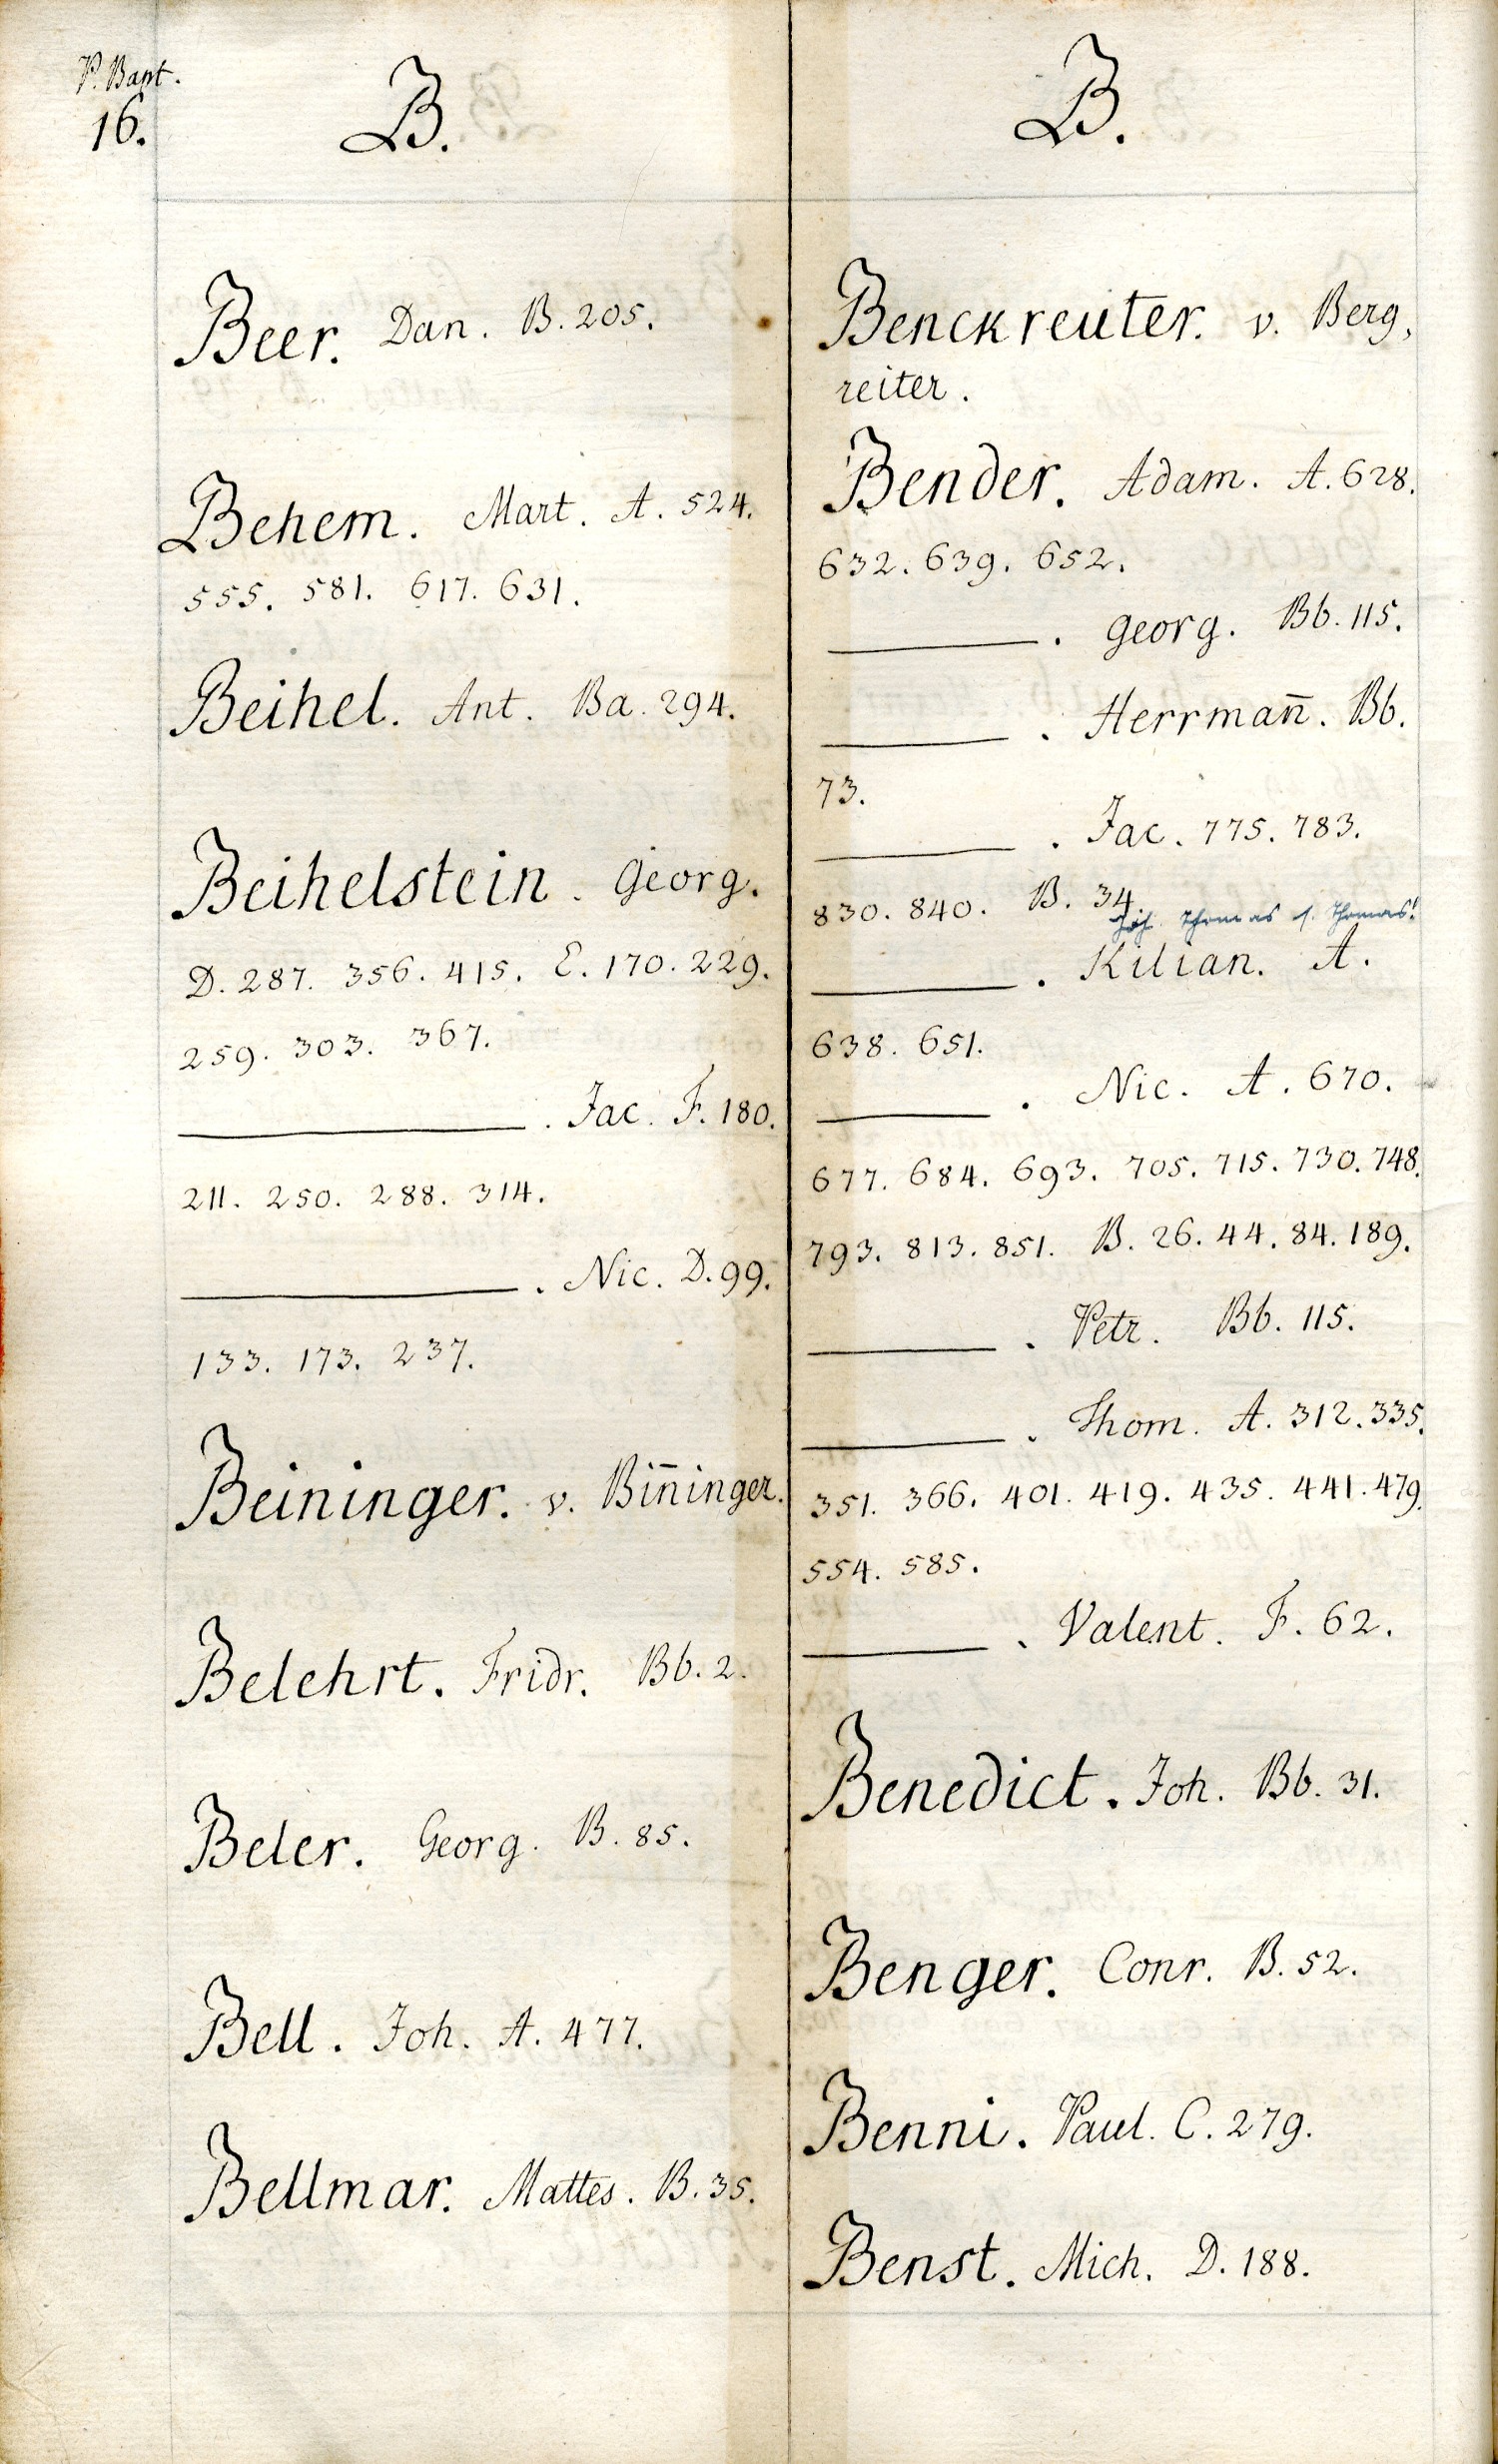 P. Bapt.
16.
B.
Beer. Dan. B. 205.
Behem. Mart. A. 524.
555. 581. 617. 631.
Beihel. Ant. Ba. 294.
Beihelstein. Georg.
D. 287. 356. 415. E. 170. 229.
259. 303. 367.
———. Jac. F. 180.
211. 250. 288. 314.
———. Nic. D. 99.
133. 173. 237.
Beininger. v. Bin̄inger.
Belehrt. Fridr. Bb. 2.
Beler. Georg. B. 85.
Bell. Joh. A. 477.
Bellmar. Mattes. B. 35.
B.
Benckreuter. v. Berg,
reiter.
Bender. Adam. A. 628.
632. 639. 652.
———. Georg. Bb. 115.
———. Herrman̄. Bb.
73.
———. Jac. 775. 783.
830. 840. B. 34.
Joh. Thomas s. Thomas!
———. Kilian. A.
638. 651.
———. Nic. A. 670.
677. 684. 693. 705. 715. 730. 748.
793. 813. 851. B. 26. 44. 84. 189.
———. Petr. Bb. 115.
———. Thom. A. 312. 335.
351. 366. 401. 419. 435. 441. 479.
554. 585.
———. Valent. F. 62.
Benedict. Joh. Bb. 31.
Benger. Conr. B. 52.
Benni. Paul. C. 279.
Benst. Mich. D. 188.